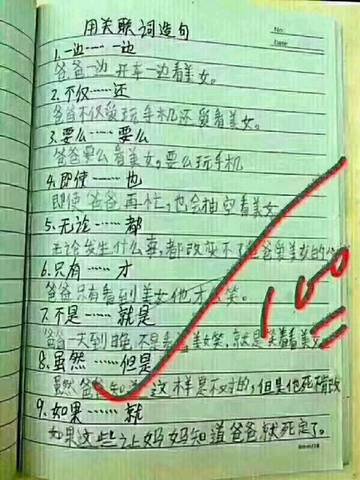 用关联词造句
No:
Date
1.一边……一边
爸爸一边开车一边看美女。
2.不仅……还
爸爸不仅爱玩手机还爱看美女。
3.要么……要么
爸爸要么看美女,要么玩手机
4.即使……也
即使爸爸再忙,也会抽空看美女
5.无论……都
无论发生什么事,都改变不了爸爸爱美女的
6.只有……才
爸爸只有看到美女他才会笑。
7.不是……就是
爸爸一天到晚不是看美女笑,就是笑着看美女
8.虽然……但是
虽然爸爸知道这样是不对的,但是他死情改
9.如果……就
如果这些让妈妈知道爸爸就死定了。
100